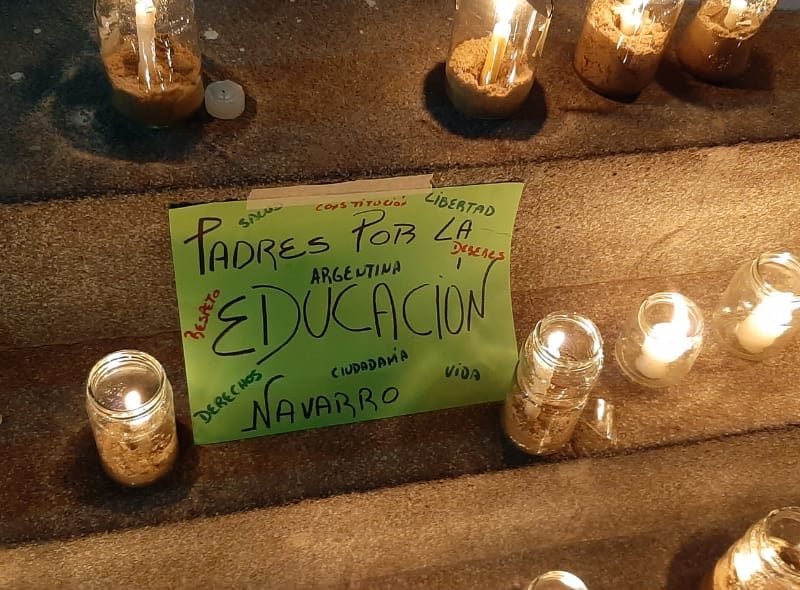 SALUD CONSTITUCIÓN LIBERTAD
PADRES POR LA
DEBERES
ARGENTINA
RESPETO
EDUCACIÓN
CIUDADANÍA
VIDA
DERECHOS
NAVARRO